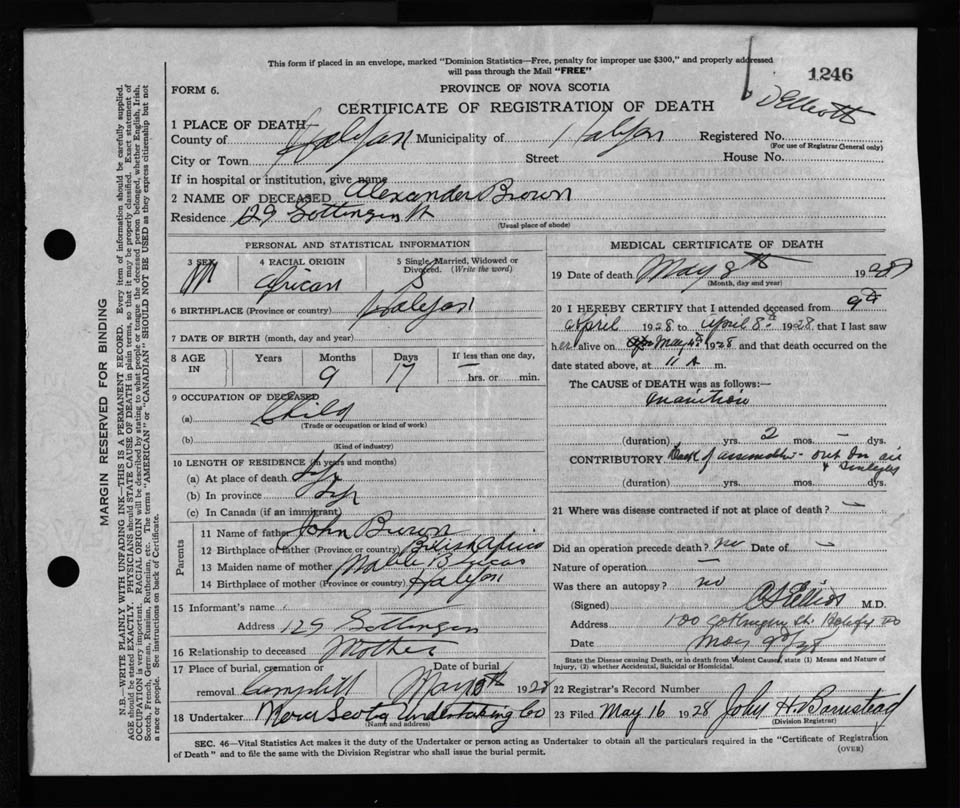 This form if placed in an envelope, marked "Dominion Statistics—Free, penalty for improper use $300," and properly addressed
will pass through the Mail "FREE"
1246
FORM 6.
PROVINCE OF NOVA SCOTIA
CERTIFICATE OF REGISTRATION OF DEATH
1 PLACE OF DEATH
County of Halifax Municipality of Halifax Registered No.
(For use of Registrar General only)
City or Town Street House No.
If in hospital or institution, give name
2 NAME OF DECEASED Alexander Brown
Residence 129 Gottingen St
(Usual place of abode)
PERSONAL AND STATISTICAL INFORMATION
3 SEX M
4 RACIAL ORIGIN African
5 Single, Married, Widowed or Divorced. (Write the word) S
6 BIRTHPLACE (Province or country) Halifax
7 DATE OF BIRTH (month, day and year)
8 AGE IN Years Months Days If less than one day,
9 17 hrs. or min.
9 OCCUPATION OF DECEASED
(a) Child
(Trade or occupation or kind of work)
(b)
(Kind of industry)
10 LENGTH OF RESIDENCE (in years and months)
(a) At place of death
(b) In province
(c) In Canada (if an immigrant)
Parents
11 Name of father John Brown
12 Birthplace of father (Province or country) British Africa
13 Maiden name of mother
14 Birthplace of mother (Province or country) Halifax
15 Informant's name
Address 129 Gottingen
16 Relationship to deceased Mother
17 Place of burial, cremation or removal Campbell Date of burial May 1928
18 Undertaker Nova Scotia Undertaking Co
(Name and address)
MEDICAL CERTIFICATE OF DEATH
19 Date of death May 8th 1928
(Month, day and year)
20 I HEREBY CERTIFY that I attended deceased from 9th
April 1928 to April 8th 1928 that I last saw
h er alive on May 4th 1928 and that death occurred on the
date stated above, at 11 A m.
The CAUSE of DEATH was as follows:—
Inanition
(duration) yrs. 2 mos. – dys.
CONTRIBUTORY Lack of
(duration) yrs. mos. dys.
21 Where was disease contracted if not at place of death? –
Did an operation precede death? no Date of –
Nature of operation –
Was there an autopsy? no
(Signed) M.D.
Address 100 Gottingen St. Halifax
Date May 9th/28
State the Disease causing Death, or in death from Violent Causes, state (1) Means and Nature of
Injury, (2) whether Accidental, Suicidal or Homicidal.
22 Registrar's Record Number
23 Filed May 16 1928 John H Barnstead
(Division Registrar)
SEC. 46—Vital Statistics Act makes it the duty of the Undertaker or person acting as Undertaker to obtain all the particulars required in the "Certificate of Registration
of Death" and to file the same with the Division Registrar who shall issue the burial permit.
(OVER)
MARGIN RESERVED FOR BINDING
N.B.—WRITE PLAINLY WITH UNFADING INK—THIS IS A PERMANENT RECORD. Every item of information should be carefully supplied.
AGE should be stated EXACTLY. PHYSICIANS should STATE CAUSE OF DEATH in plain terms, so that it may be properly classified. Exact statement of
OCCUPATION is very important. RACIAL ORIGIN will be described by stating to what people or tongue the deceased person belonged, whether English, Irish,
Scotch, French, German, Russian, Ruthenian, etc. The terms "AMERICAN" or "CANADIAN" SHOULD NOT BE USED as they express citizenship but not
a race or people. See instructions on back of Certificate.